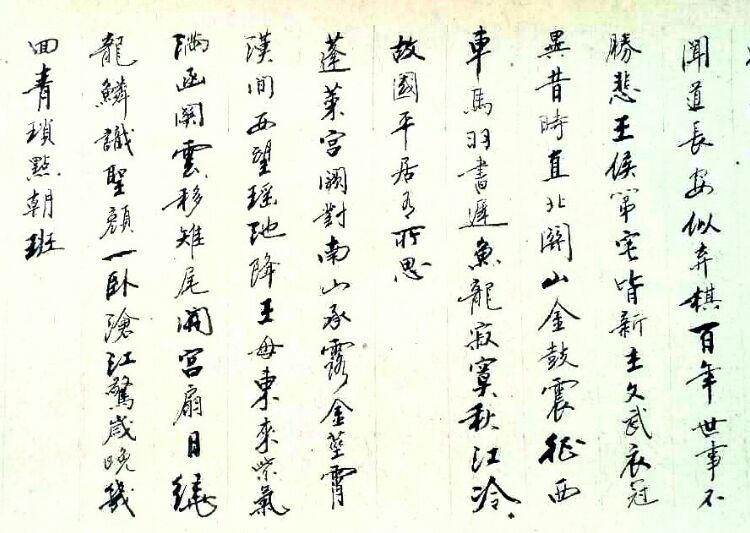 聞道長安似弈棋百年世事不
勝悲王侯第宅皆新主文武衣冠
異昔時直北關山金鼓震征西
車馬羽書遲魚龍寂寞秋江冷
故國平居有所思
蓬萊宮闕對南山承露金莖霄
漢間西望瑤池降王母東來紫氣
滿函關雲移雉尾開宮扇日繞
龍鱗識聖顏一臥滄江驚歲晚幾
回青瑣點朝班